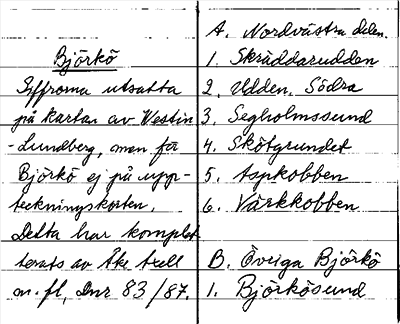 Björkö
Siffrorna utsatta
på kartan av Westin
-Lundberg, men för
Björkö ej på upp-
teckningskorten.
Detta har komplet
terats av Åke Axell
m.fl, Dnr 83/87.
A. Nordvästra delen.
1. Skräddarudden
2. Udden, Södra
3. Segholmssund
4. Skötgrundet
5. Aspkobben
6. Värkkobben
B. Övriga Björkö
1. Björkösund